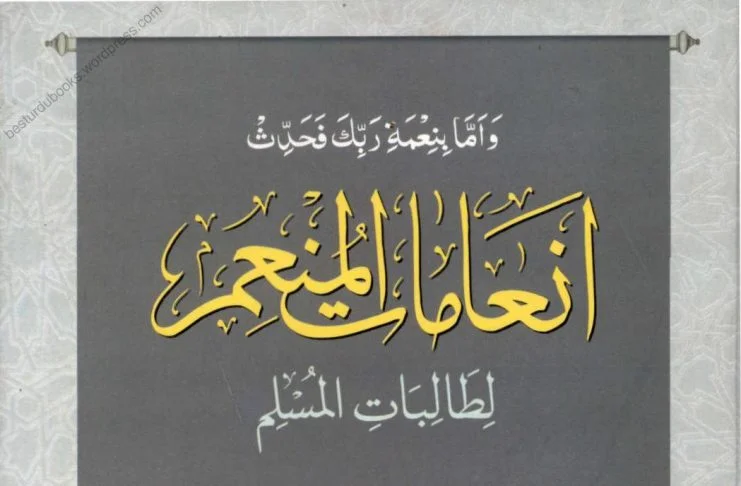 besturdubooks.wordpress.com
وَاَمَّا بِنِعْمَةِ رَبِّكَ فَحَدِّثْ
انعامات المنعم
لِطَالِبَاتِ المُسْلِم